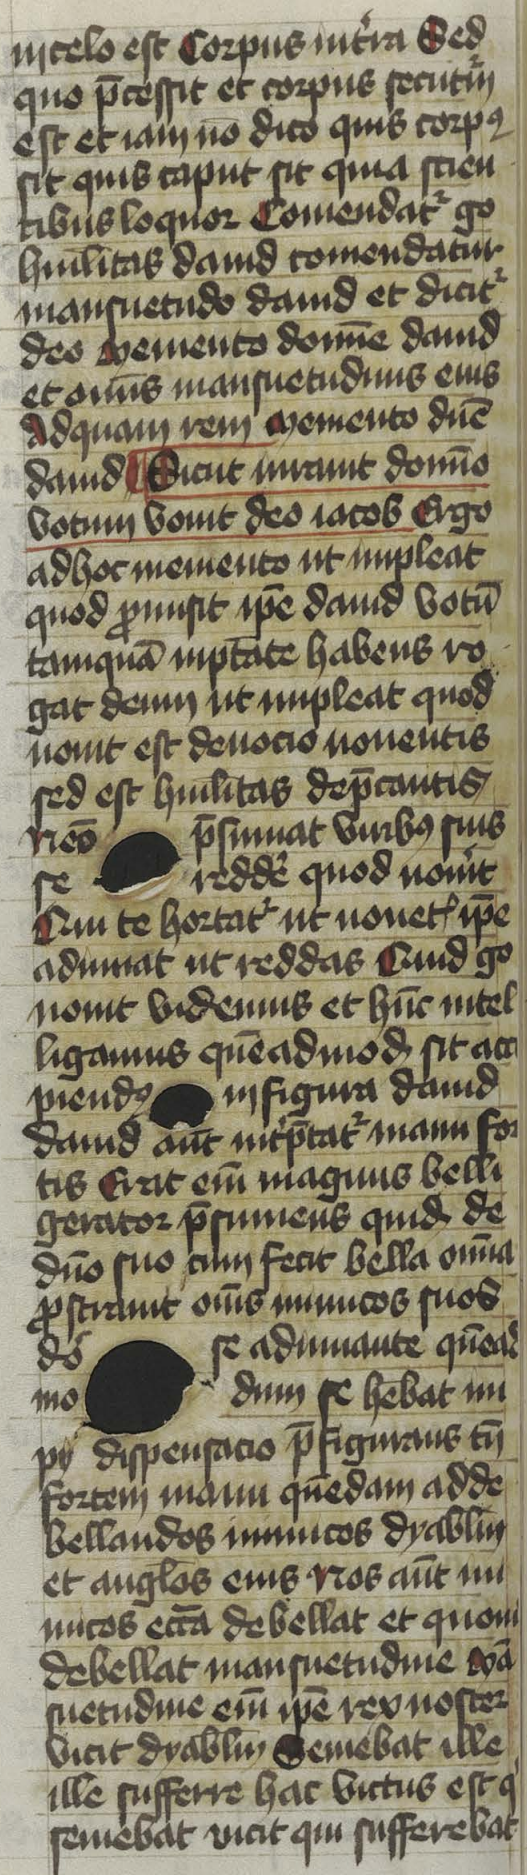 in celo est Corpus int̉ra Sed
quo p̄cessit et corpus secutū
est et iam nō dico quis corpꝰ
sit quis caput sit quia scien
tibus loquor Comendatᷣ go
huīlitas dauid comendatur
mansuetudo dauid et dicitᷣ
deo Memento domīe dauid
et om̄is mansuetudinis eius
Adquam rem Memento dn̄e
dauid Sicut iurauit domīo
votum vouit deo iacob Ergo
adhoc memento ut impleat
quod ꝓmisit ip̄e dauid votū
tamquā inptāte habens ro
gat deum ut impleat quod
uouit est deuocio uouentis
sed est huīlitas dep̄cantis
Neō p̄sumat viribꝰ suis
se redder̄ quod nou̓it
Qui te hortatᷣ ut uouetꝭ ip̄e
adiuuat ut reddas Quid go
uouit videmus et hin̄c intel
ligamus quēadmodꝫ sit acci
piendꝰ in figura dauid
dauid aūt int̓p̄tatᷣ manu for
tis Erat em̄ magnus belli
gerator p̄sumens quidꝫ de
dn̄o suo cum fecit bella om̄ia
ꝓstrauit om̄is inimicos suos
dō se adiuuante quēad
mo dum se hebat im
pij dispensacio p̄figurans tn̄
fortem manu quēdam adde
bellandos inimicos dyablm̄
et anglos eius Nos aūt ini
micos ecc̄a debellat et quom̄
debellat mansuetudine Mā
suetudine em̄ ip̄e rex noster
vicit dyablm̄ Seuiebat ille
ille sufferre hac victus est q̓
seuiebat vicit qui sufferebat